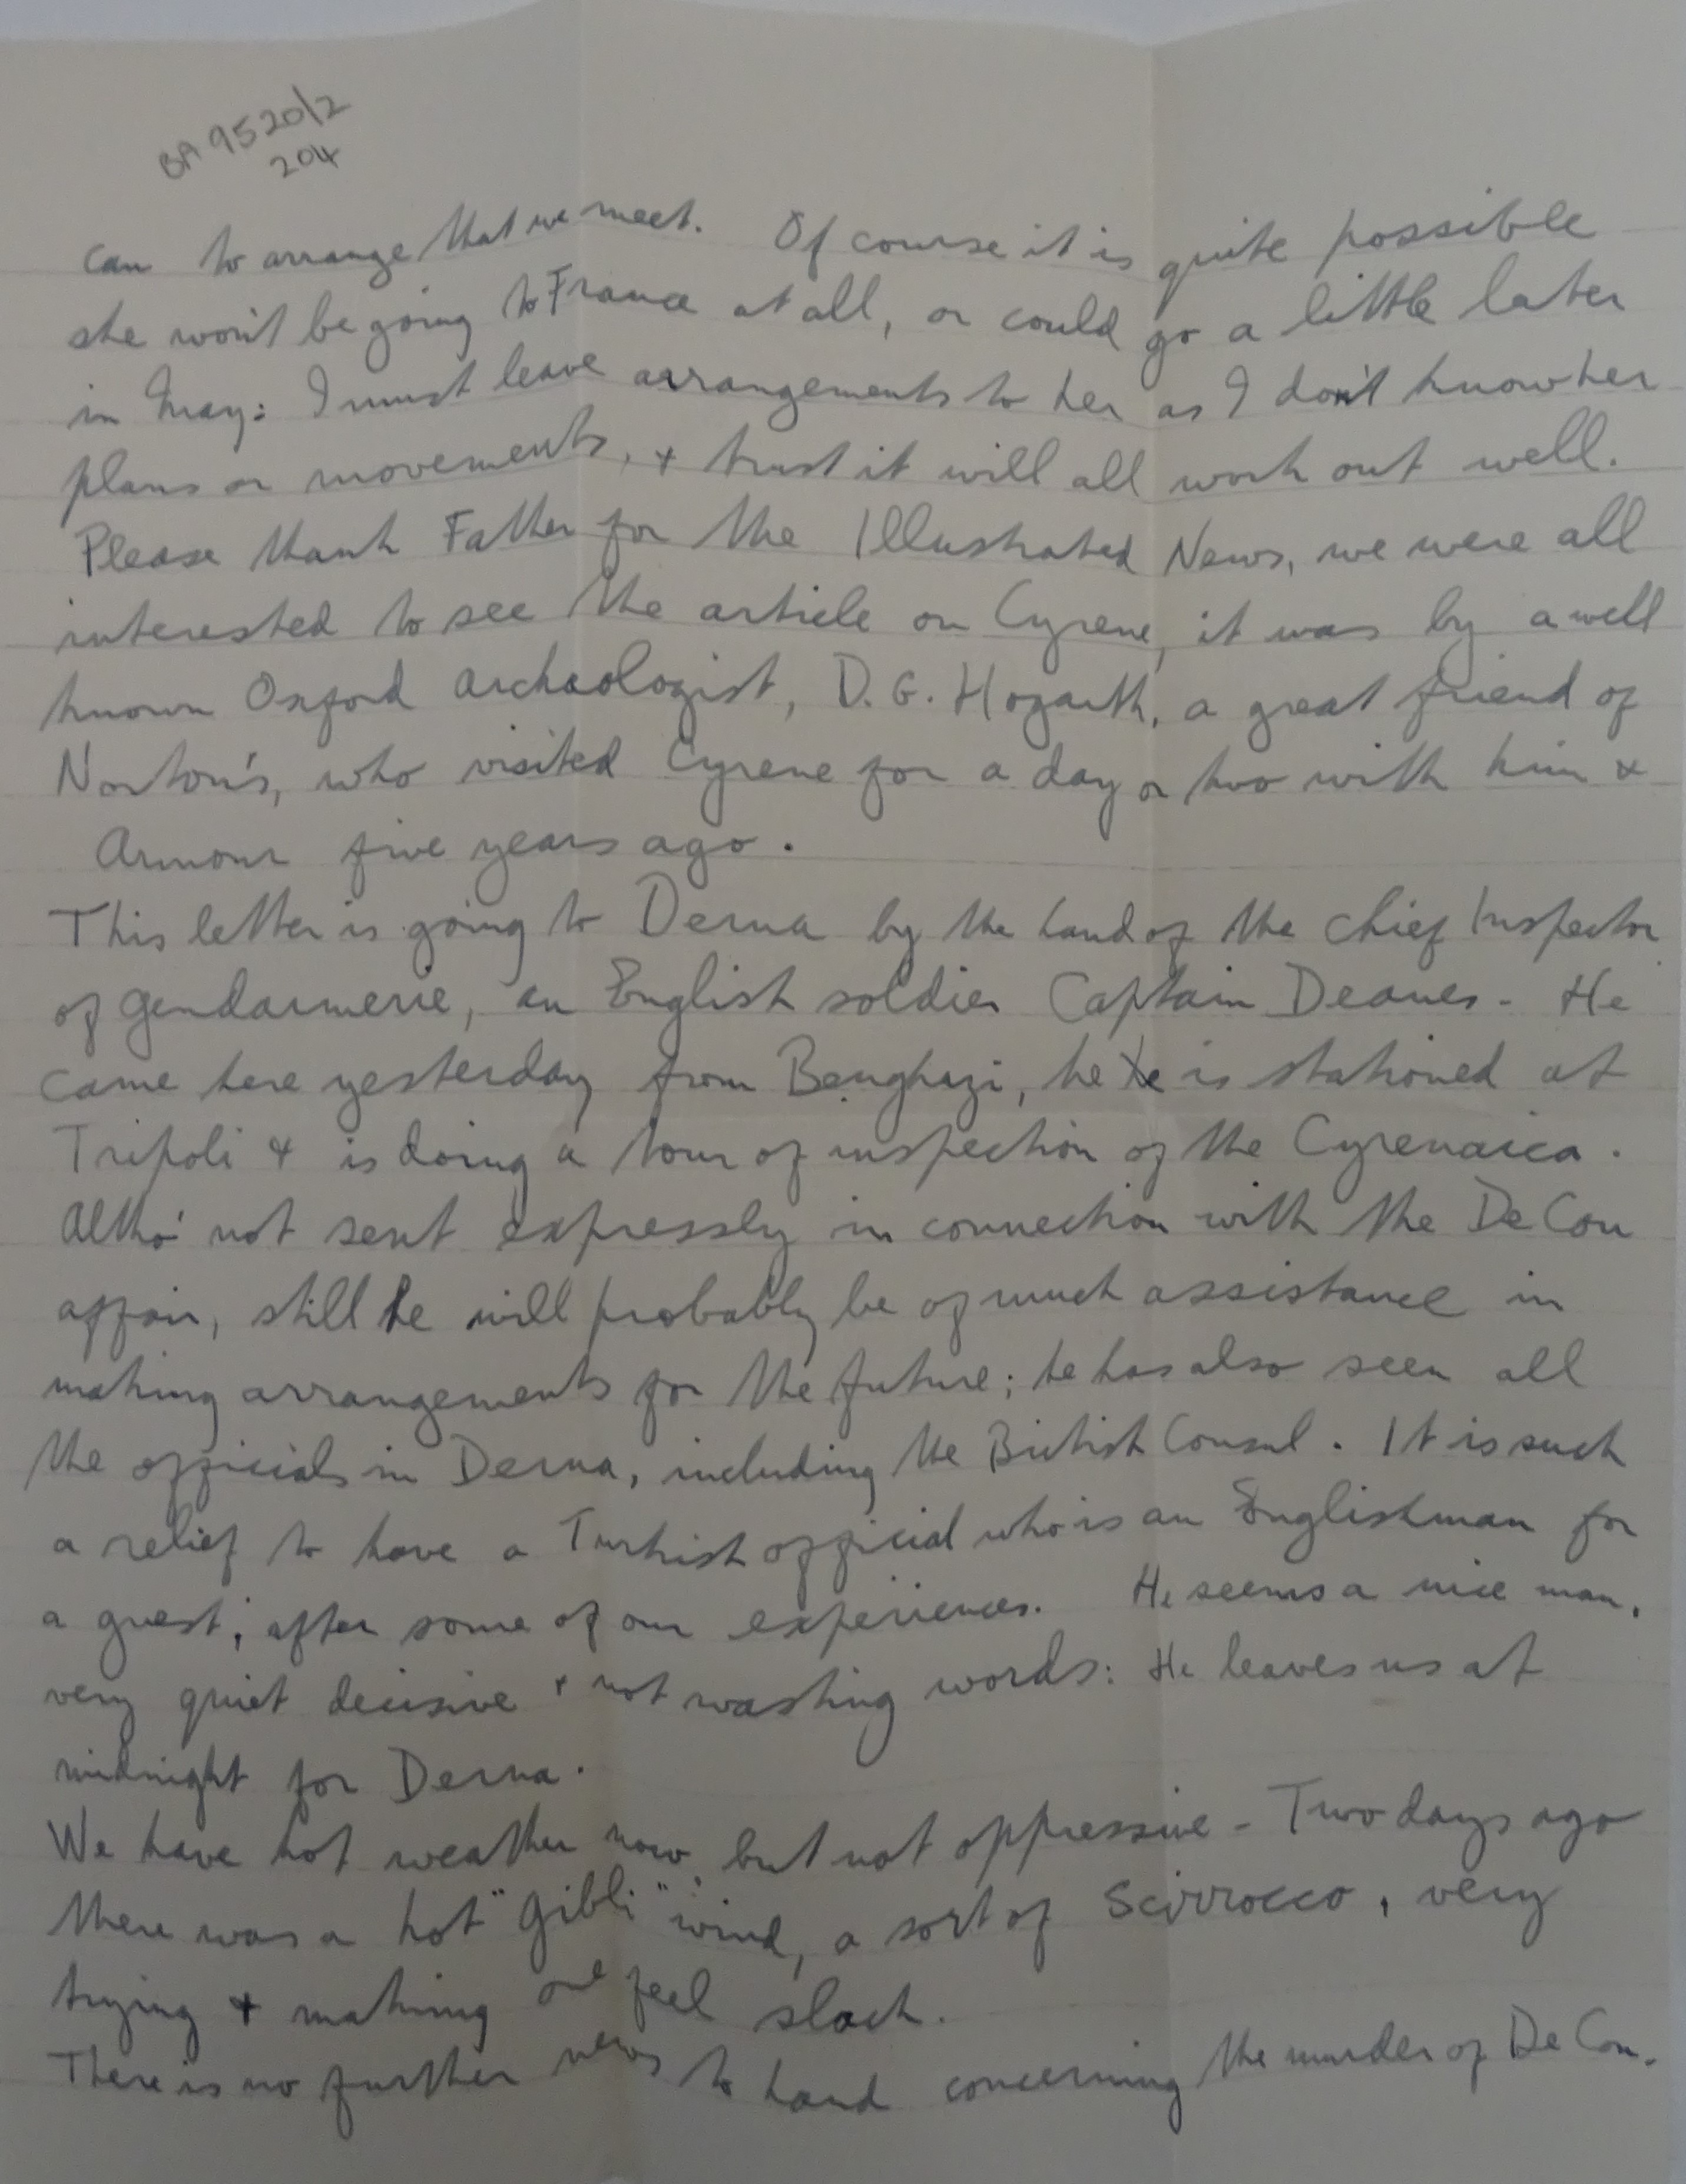 BA 9520/2
204
can to arrange that we meet. Of course it is quite possible
she won't be going to France at all, or could go a little later
in May: I must leave arrangements to her as I don't know her
plans or movements, + trust it will all work out well.
Please thank Father for the Illustrated News, we were all
interested to see the article on Cyrene, it was by a well
known Oxford archaeologist, D. G. Hogarth, a great friend of
Norton's, who visited Cyrene for a day or two with him &
Armour five years ago.
This letter is going to Derna by the hand of the chief Inspector
of gendarmerie, an English soldier Captain Deanes - He
came here yesterday from Benghazi, he is stationed at
Tripoli & is doing a tour of inspection of the Cyrenaica.
Altho' not sent expressly in connection with the De Cou
affair, still he will probably be of much assistance in
making arrangements for the future; he has also seen all
the officials in Derna, including the British Consul. It is such
a relief to have a Turkish official who is an Englishman for
a guest, after some of our experiences. He seems a nice man,
very quiet decisive + not wasting words: He leaves us at
midnight for Derna.
We have hot weather now, but not oppressive - Two days ago
there was a hot "Gibli" wind, a sort of Scirrocco, very
trying + making one feel slack.
There is no further news to hand concerning the murder of De Cou.